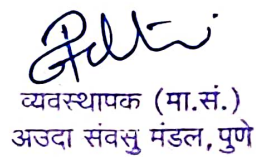 व्यवस्थापक (मा.सं.)
अउदा संवसु मंडल, पुणे